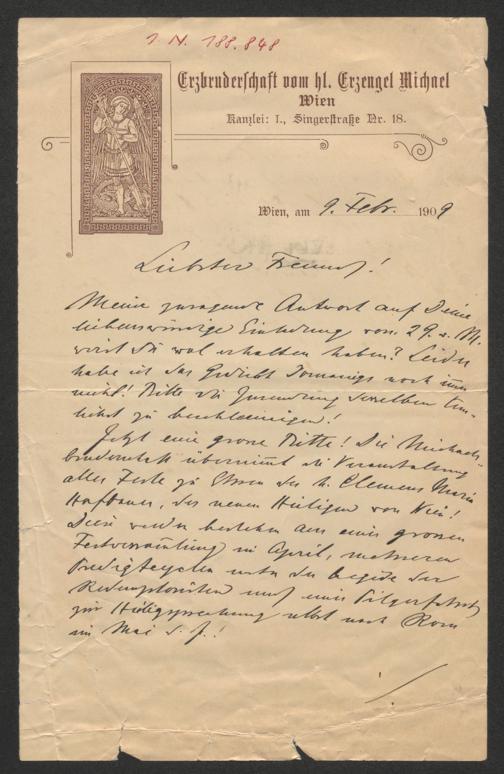 I. N. 188.848
Erzbruderschaft vom hl. Erzengel Michael
Wien
Kanzlei: I., Singerstraße Nr. 18.
Wien, am 9. Febr. 1909
Liebster Freund!
Meine zusagende Antwort auf Deine
liebenswürdige Einladung vom 29. v. M.
wirst Du wol erhalten haben? Leider
habe ich das Gedicht Domanigs noch immer
nicht! Bitte die Zusendung desselben tun-
lichst zu beschleunigen!
Jetzt eine grosse Bitte! Die Michaels-
bruderschaft übernimmt die Veranstaltung
aller Feste zu Ehren des h. Clemens Maria
Hofbauer, des neuen Heiligen von Wien!
Diese werden bestehen aus einer grossen
Festversammlung im April, mehreren
Predigtcyclen unter der Aegide der
Redemptoristen und einer Pilgerfahrt
zur Heiligsprechung selbst nach Rom
im Mai d. J.!